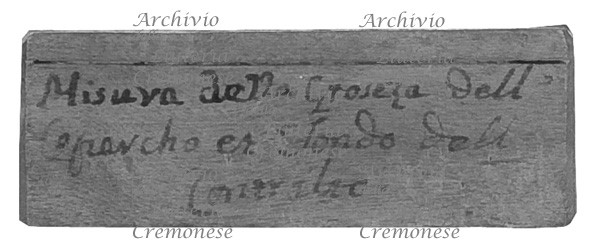 Archivio Archivio
Misura della Groseza dell
Copercho et Fondo dell
Cremonese Cremonese